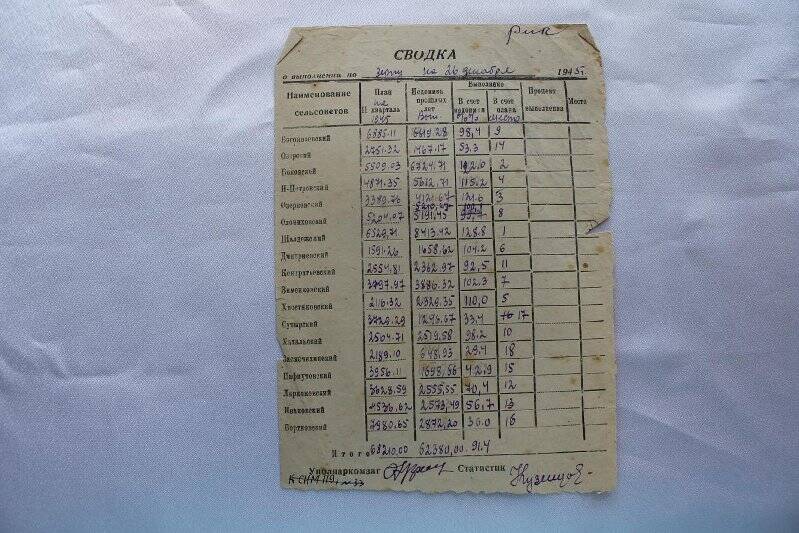 рик
СВОДКА
о выполнении по зерну на 26 декабря 1945 г.
Наименование сельсоветов План на II квартала 1945 Недоимка прошлых лет Вып. Выполнено В счет недоимки % % В счет плана место Процент выполнения Место
Богоявленский 6885.11 6819.28 98,4 9
Озерский 2751.32 1467.17 53.3 14
Боковской 5509.03 6724.71 112.0 2
Н-Петровский 4871.35 5612.71 115.2 4
3389.76 4121.67 121.6 3
5204.07 5191,45 99,7 8
Шалдежский 6529.71 8413.42 128.8 1
Дмитриевский 1591.26 1658.62 104.2 6
Кондратьевский 2554.81 2362.97 92,5 11
Зименковский 3797.97 3886.32 102.3 7
Хвостиковский 2116.32 2329.35 110,0 5
Сутырский 3729.29 1246.67 33.4 17
Хахальский 2504.71 2519.58 98.2 10
2189.10 648.93 29.4 18
Пафнутовский 3956.11 1698,66 42.9 15
Ларионовский 3628.59 2555,55 70,4 12
Ивановский 4536.62 2573,49 56,7 13
Бортновский 7980.65 2872,20 36.0 16
Итого 68210,00 62380,00 91.4
Уполнаркомзаг Статистик Кузнецов